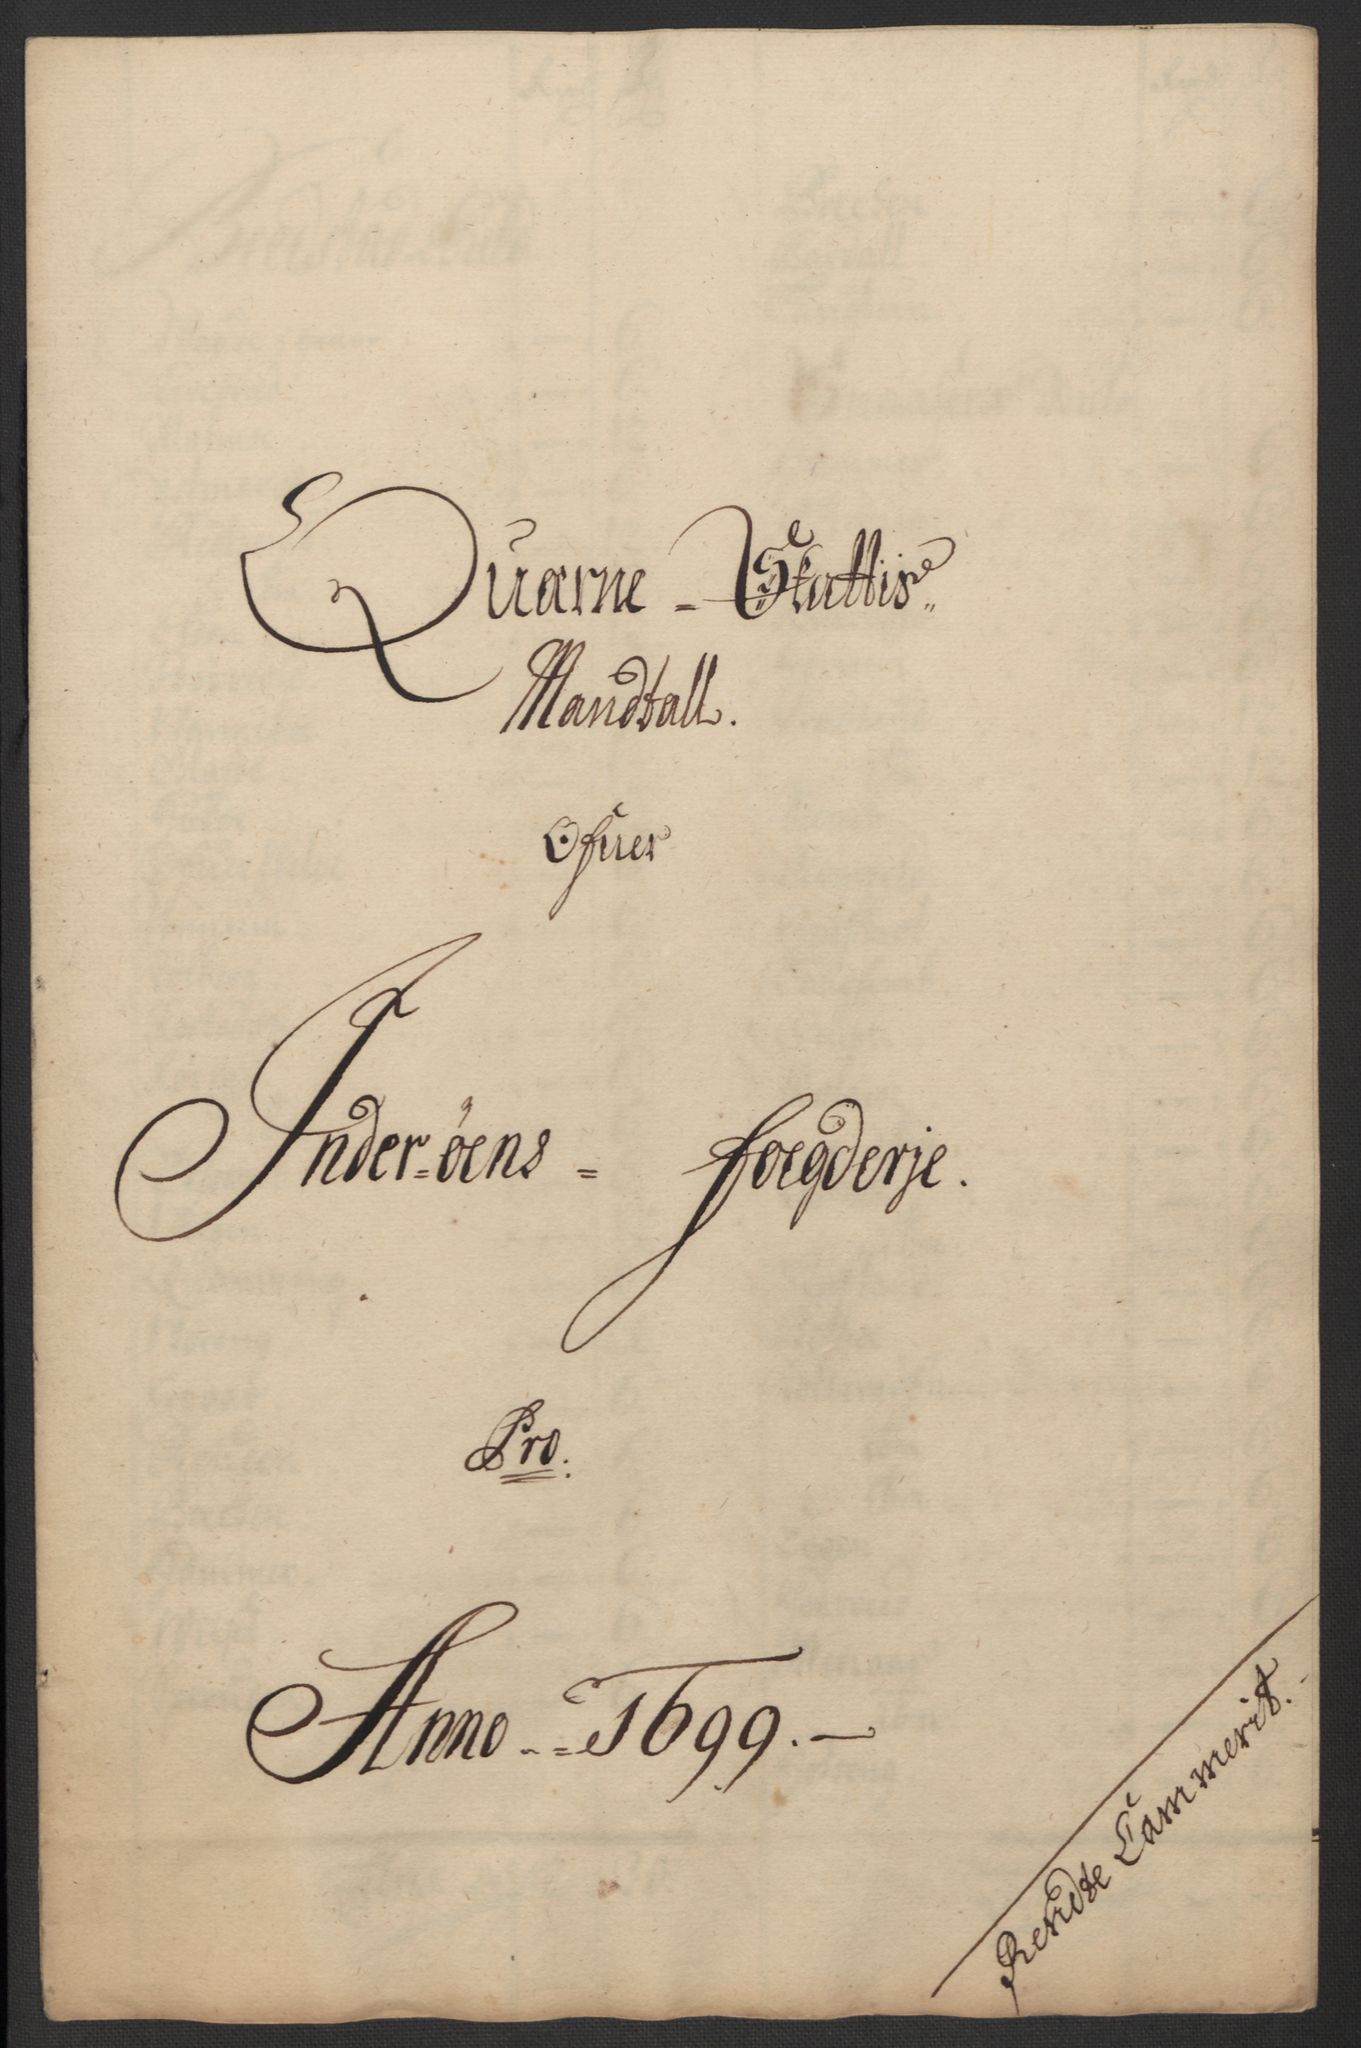 Quarne - Skattis
Mandtall.
Ofuer
Inder-öens = foegderje.
Pro.
Anno -- 1699. —
Rendte Cammerit.